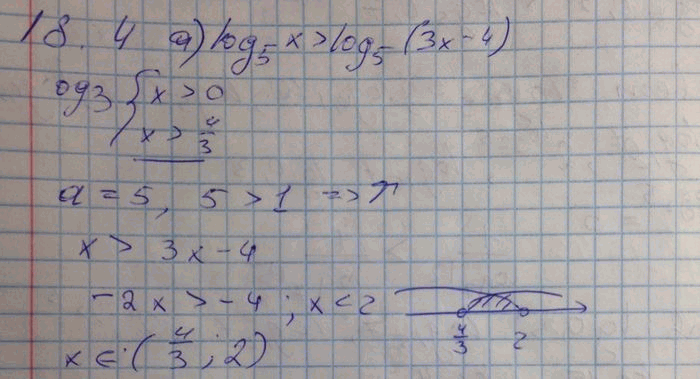 18.4 а) log₅ x > log₅ (3x-4)
ОДЗ { x > 0
x > 4/3
a = 5, 5 > 1 => ↑
x > 3x-4
-2x > -4 ; x < 2
x ∈ (4/3 ; 2)
4/3 2